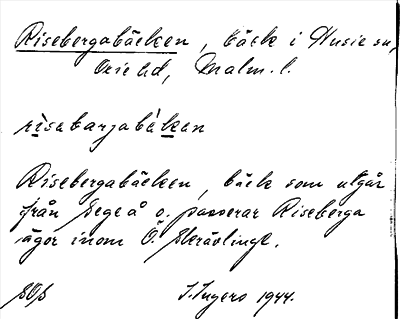 Risebergabäcken, bäck i Husie sn,
Oxie hd, Malm. l.
risabarjabäken
Risebergabäcken, bäck som utgår
från Sege å o. passerar Riseberga
ägor inom Ö. Skrävlinge.
I. Ingers 1944.